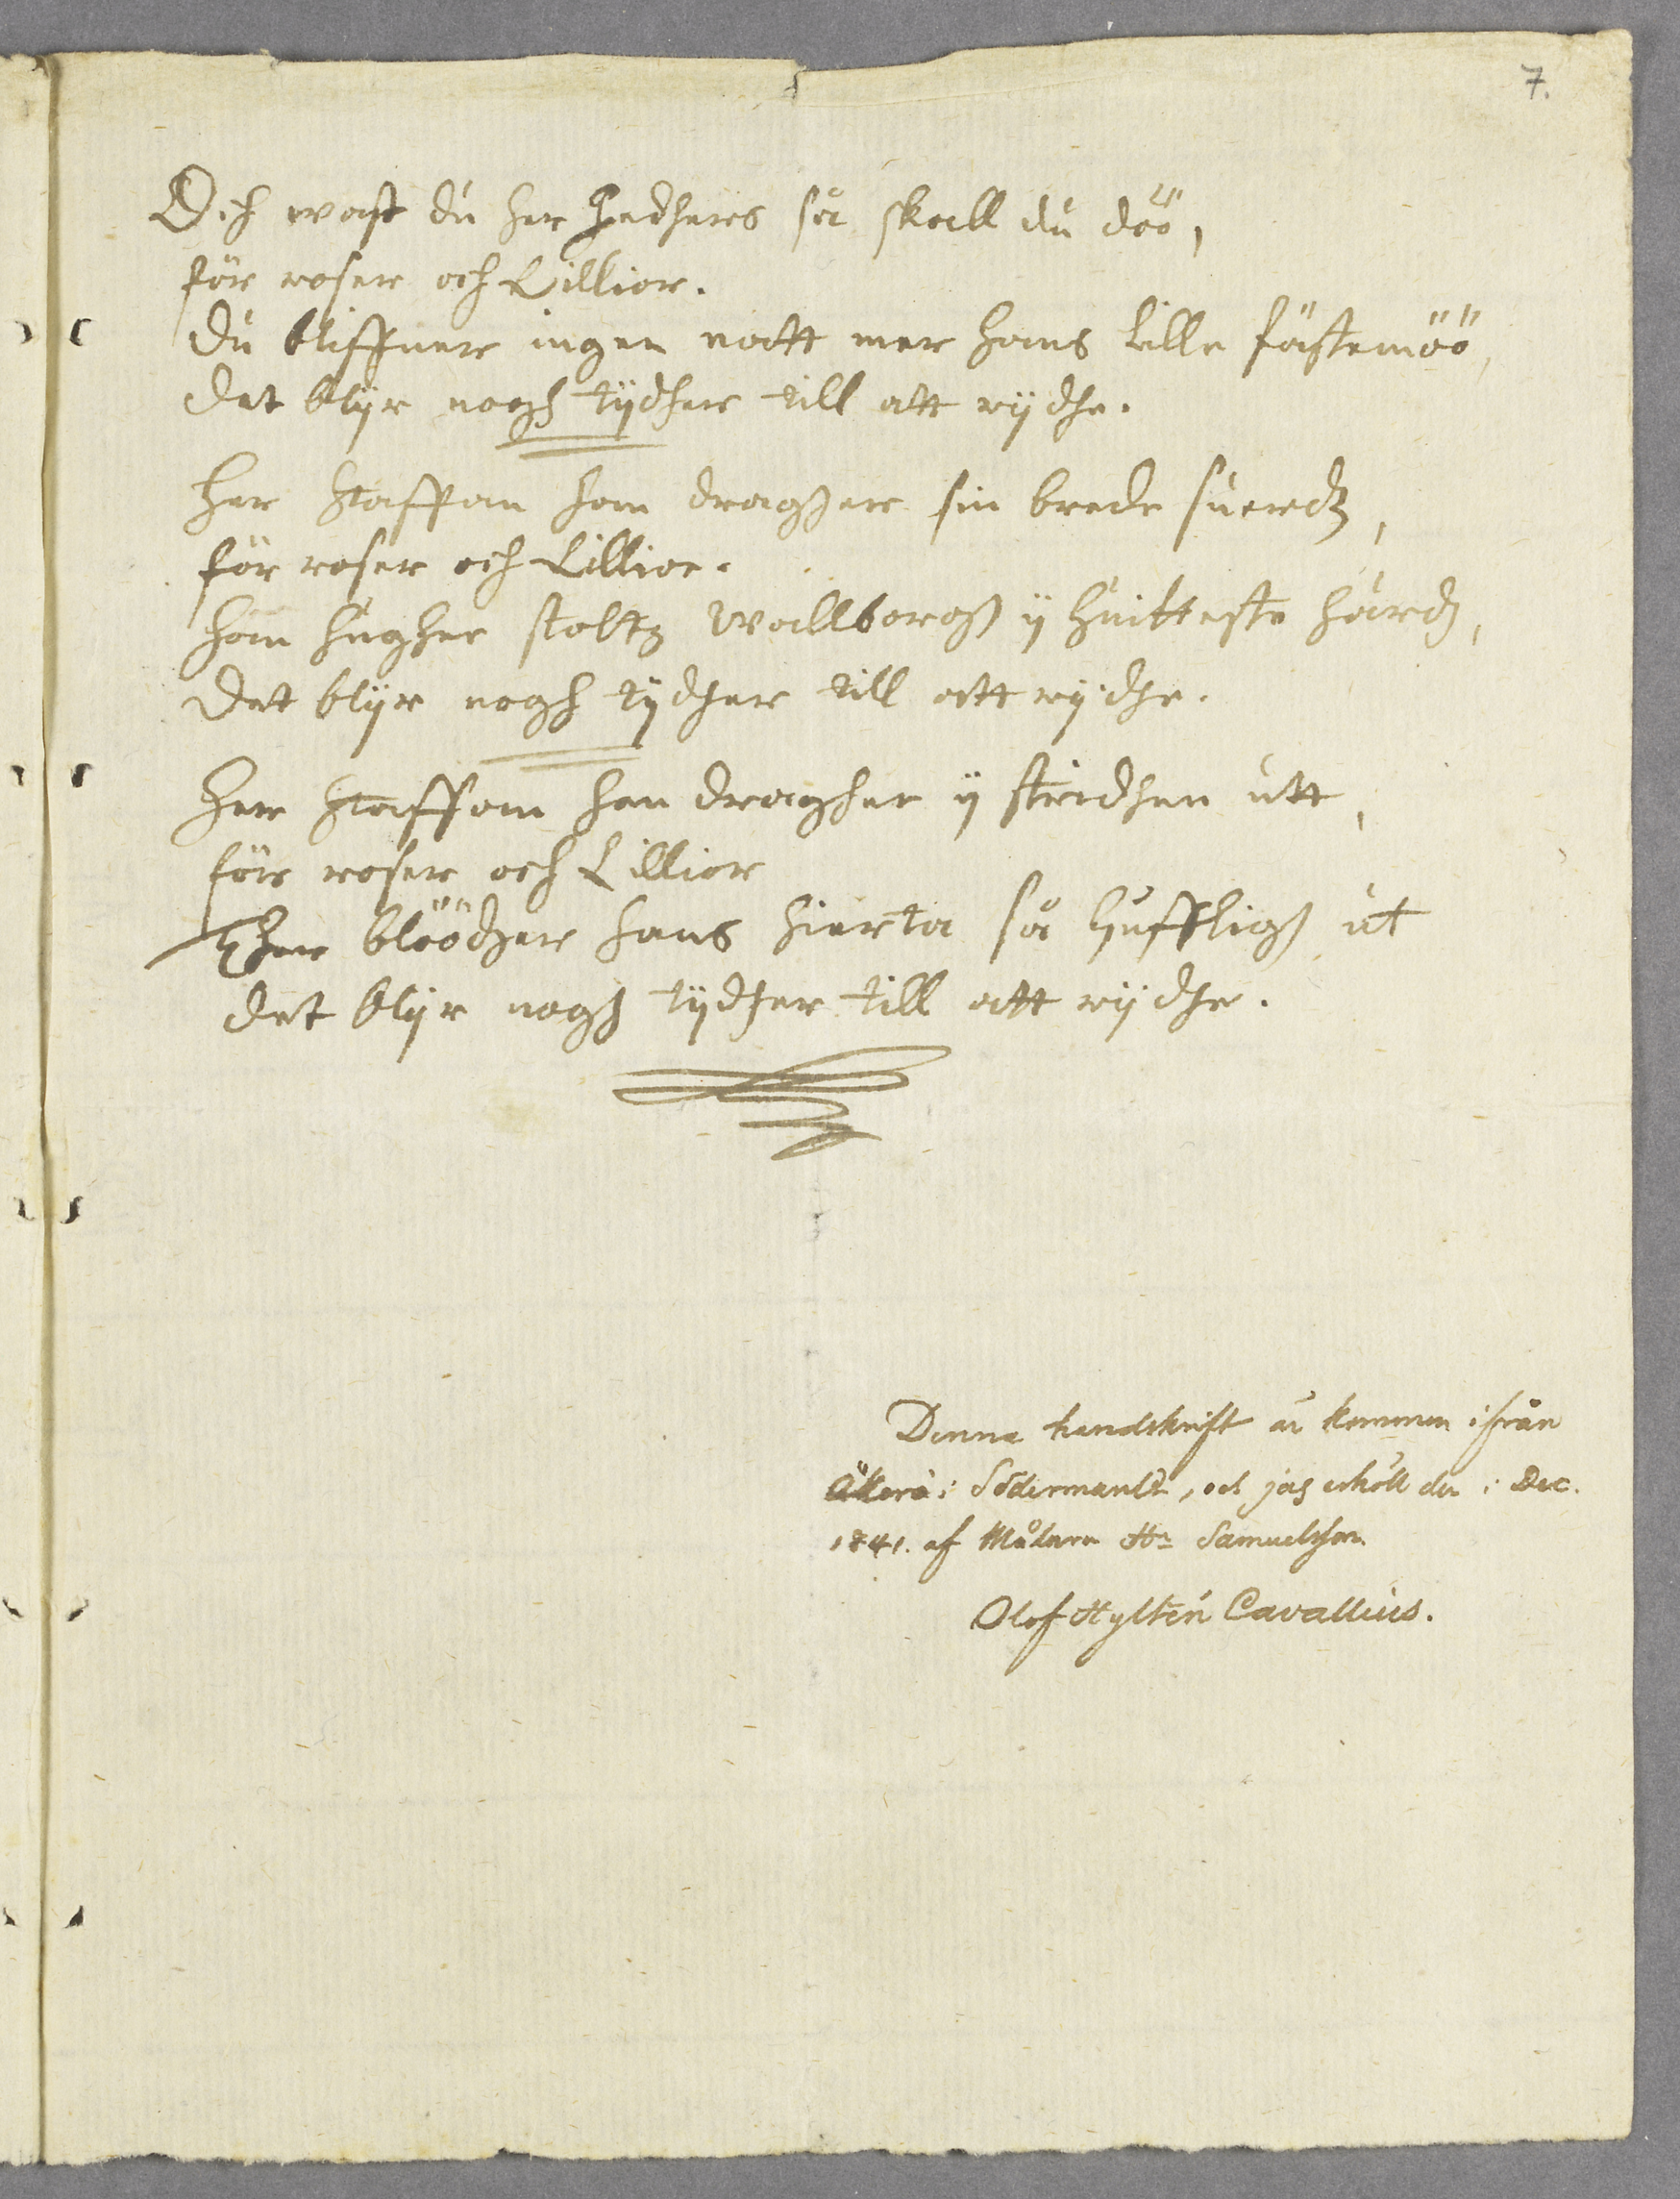 7.
Och wast du her Pedhers så skall du döö,
för roser och Lillior.
du bliffuer ingen natt mer hans lille fästemöö,
det blÿr nogh tÿdher till att rÿdhe.
Her Staffan han dragher sin brede suerdh,
för roser och Lillior.
han hugher stoltz Wallborgh ÿ huitteste hårdh,
det blÿr nogh tÿdher till att rÿdhe.
Her Staffan han dragher ÿ stridhen utt,
för roser och Lillior
Ther blöödher hans hierta så liuffligh ut
det blÿr nogh tÿdher till att rÿdhe.
Denna handskrift är kommen ifrån
Åkerö i Södermanld, och jag erhöll den i Dec.
1841. af Målaren Hr Samuelsson.
Olof Hyltén Cavallius.